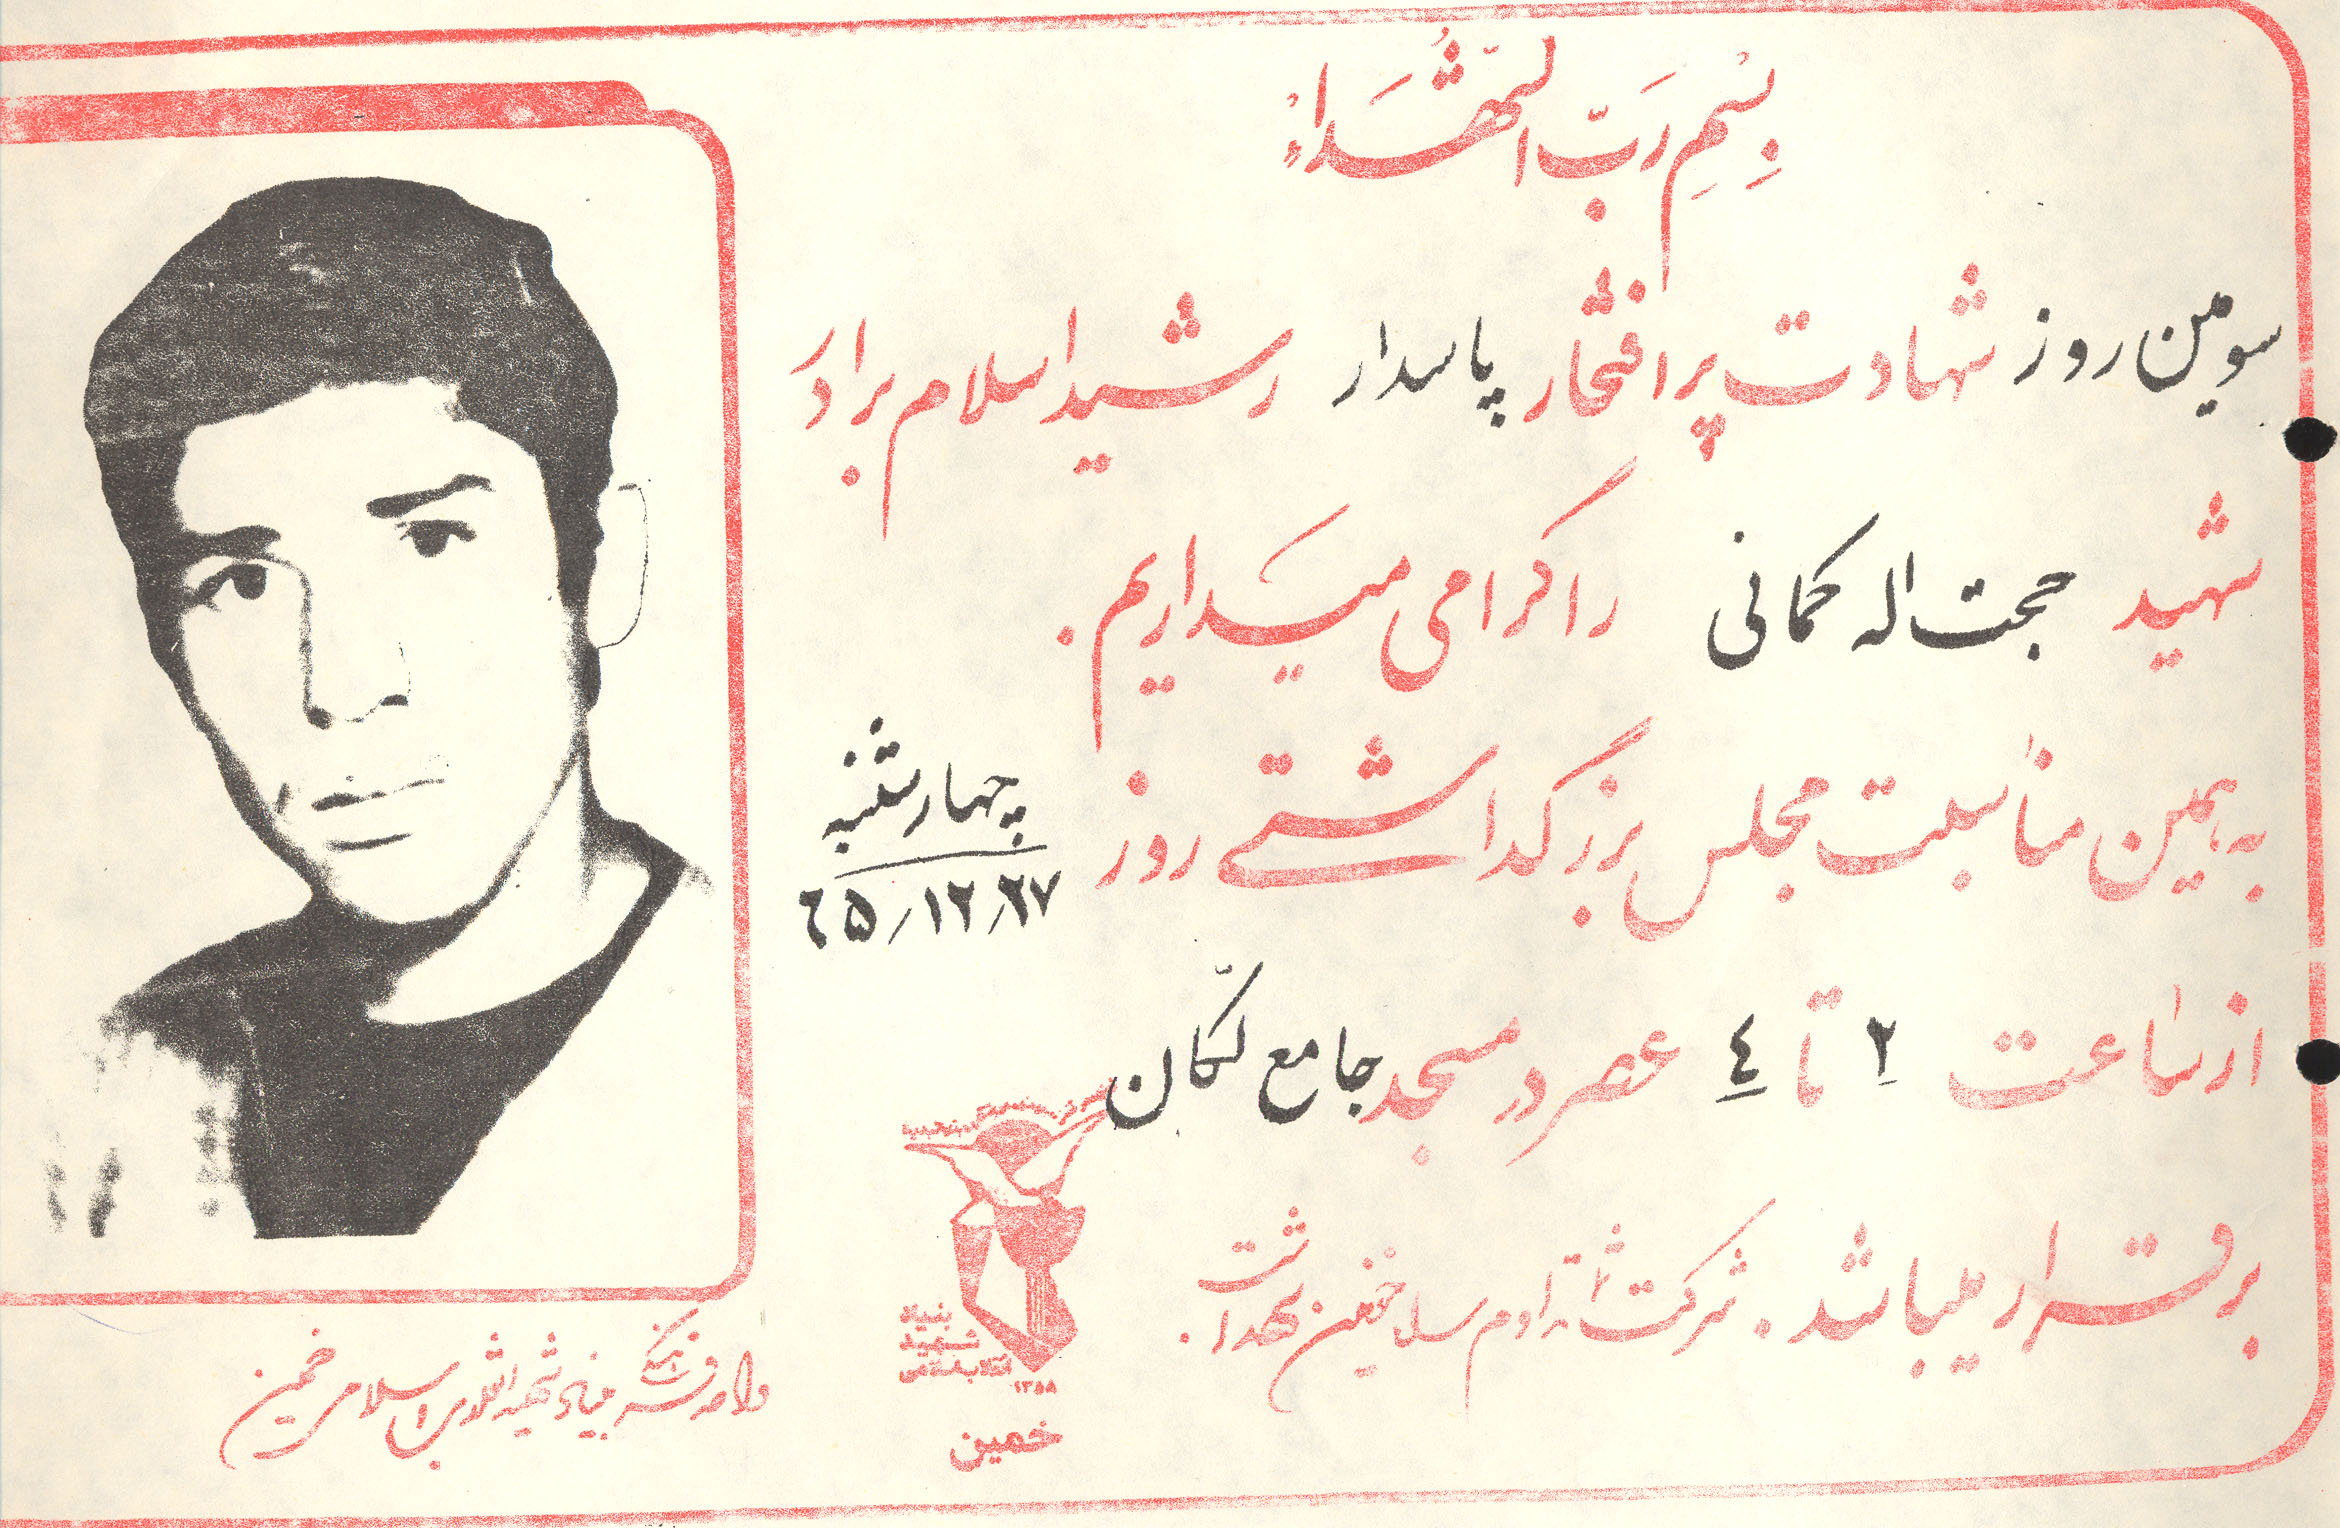 بِسْمِ رَبِّ الشُّهَداءُ
سومین روز شهادت پر افتخار پاسدار رشید اسلام برادر
شهید حجت اله کمانی را گرامی میداریم .
به همین مناسبت مجلس بزرگداشتی روز چهارشنبه
۶۵/۱۲/۲۷
از ساعت ۲ تا ٤ عصر در مسجد جامع لکان
برقرار میباشد . شرکت شما تداوم خواهد داشت .
بنیاد
شهید
انقلاب اسلامی
۱۳۵۸
خمین
واحد فرهنگی بنیاد شهید انقلاب اسلامی خمین